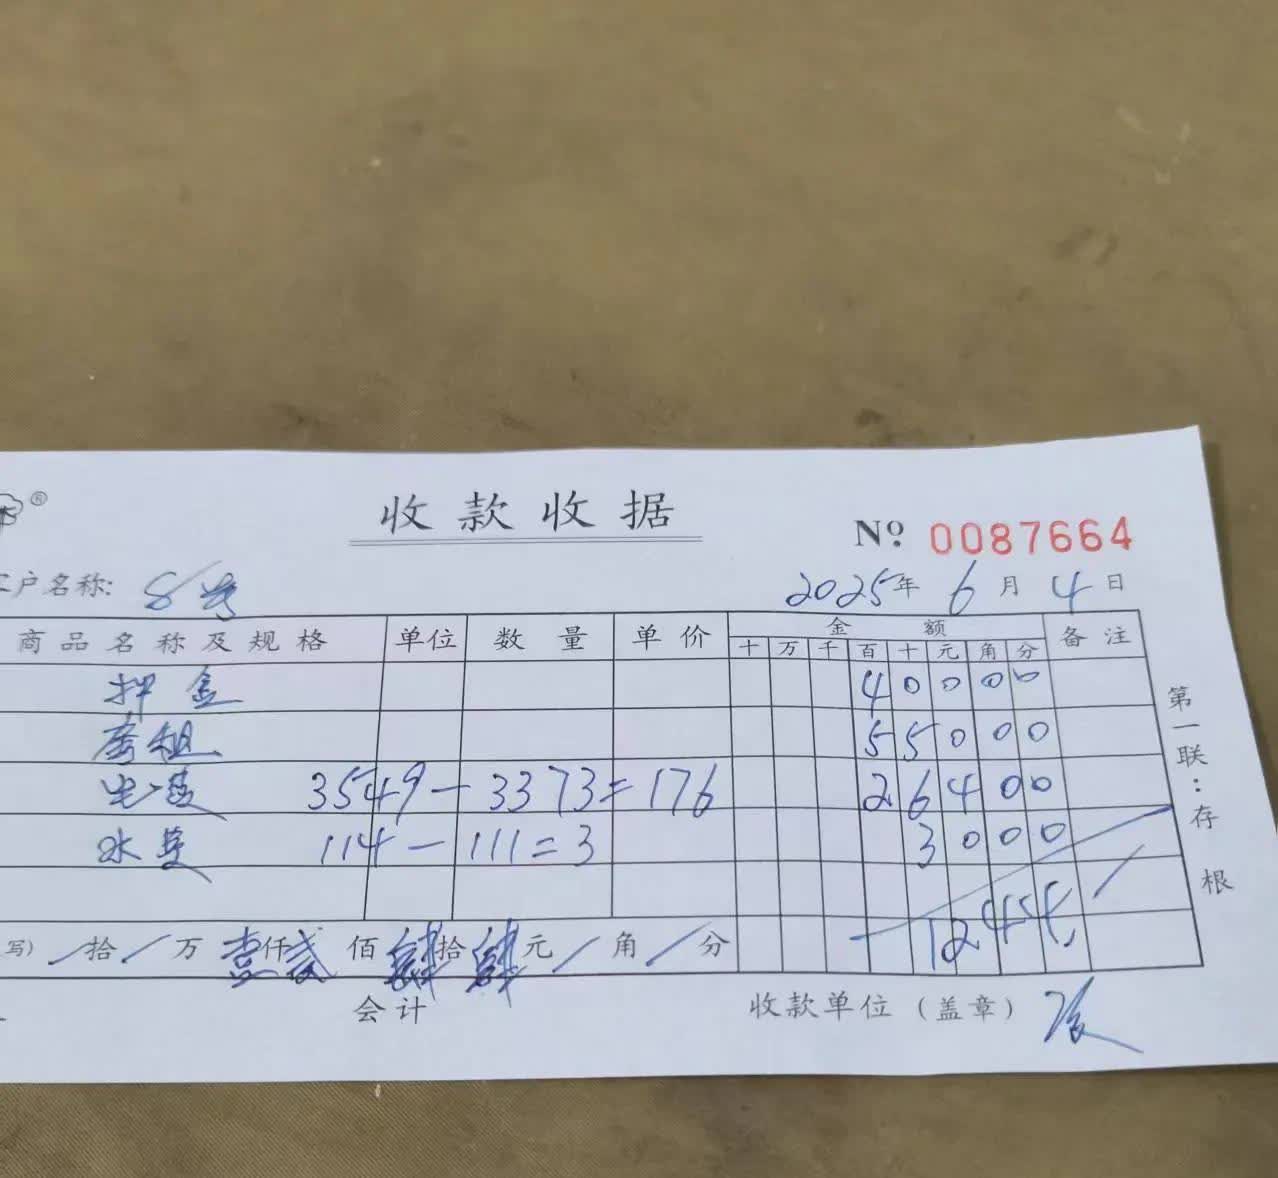 ®
收款收据
№ 0087664
户名称: 8号
2025年 6月 4日
商品名称及规格 单位 数量 单价 金额 备注
十 万 千 百 十 元 角 分
押金 40000
房租 55000
电费 3549-3373=176 26400
水费 114-111=3 3000
写) / 拾 / 万 壹仟 贰佰 肆拾 肆元 / 角 / 分 1244
会计 收款单位(盖章)
第一联:存根